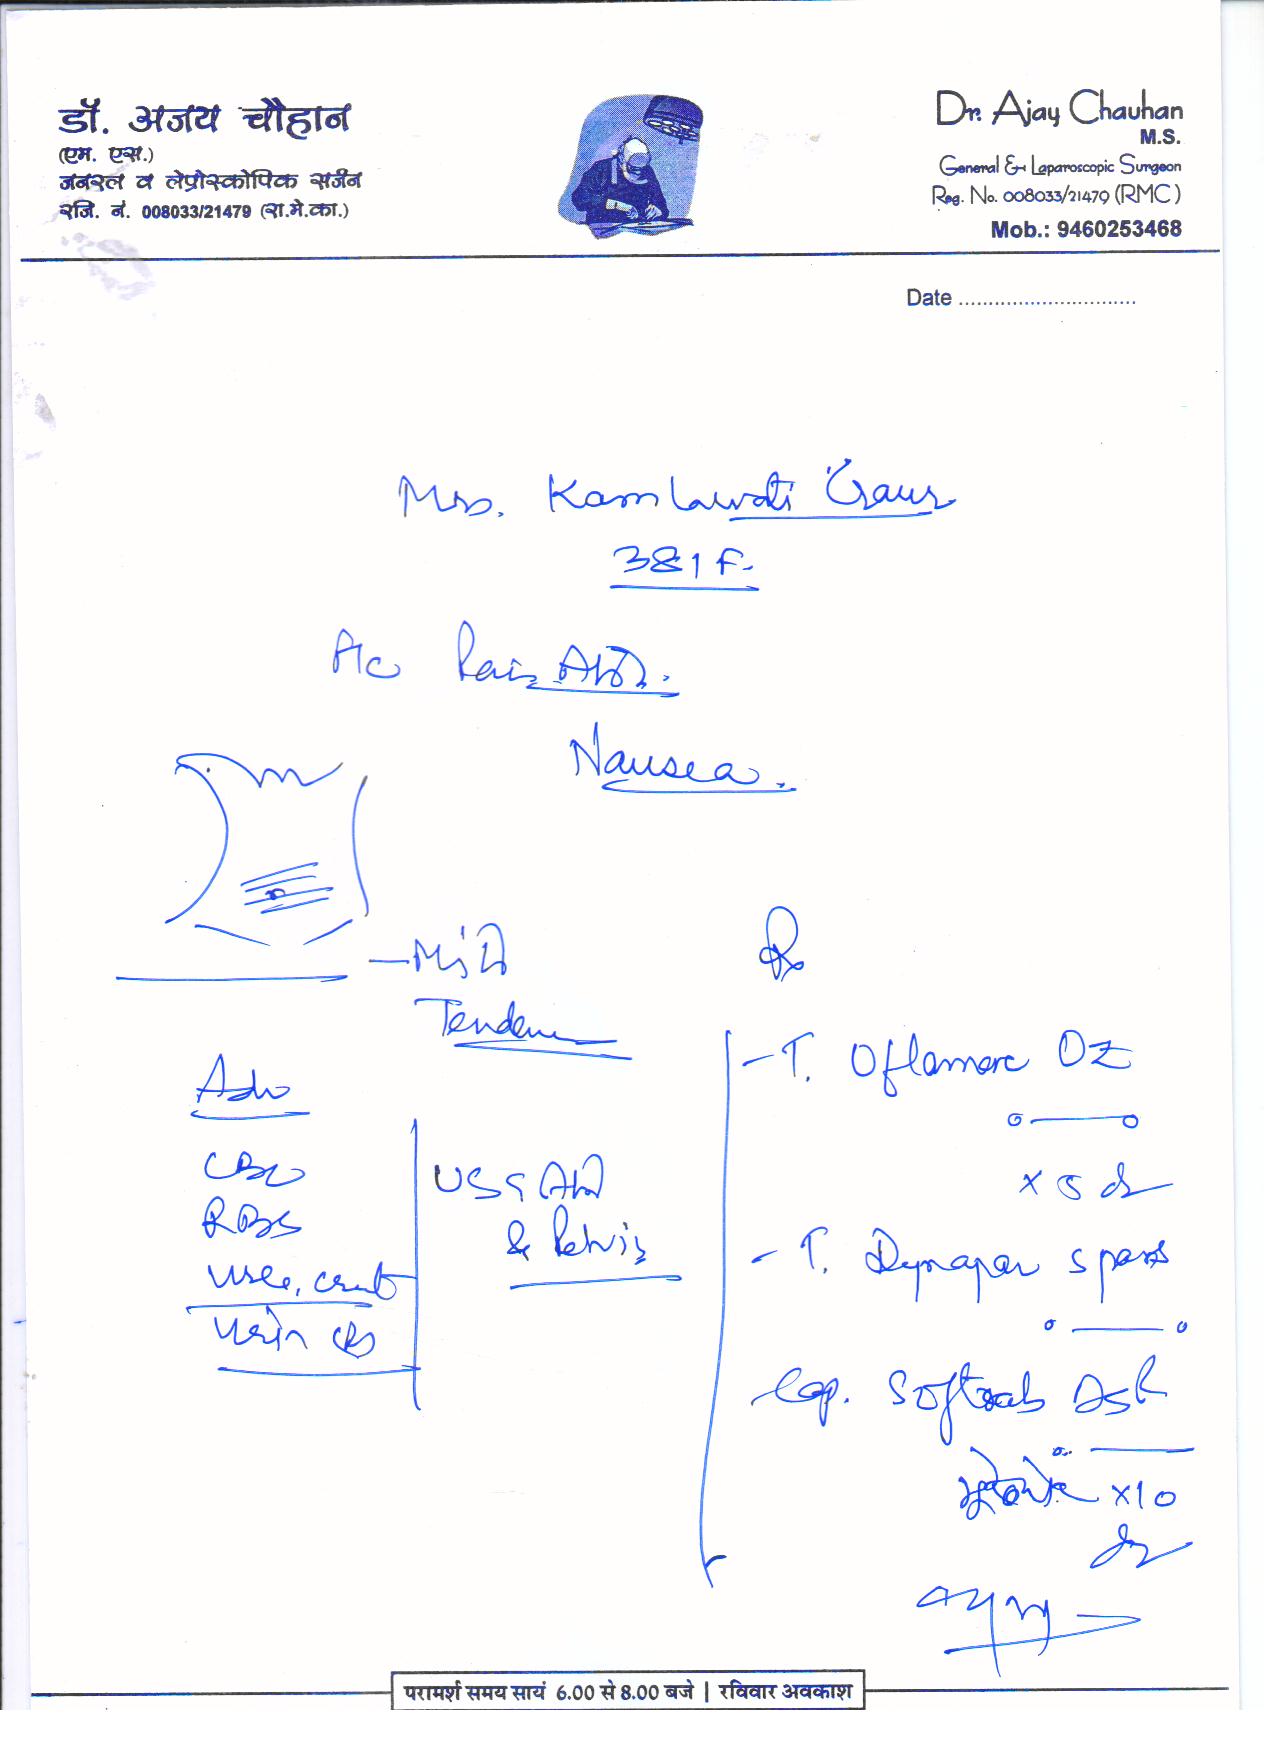 डॉ. अजय चौहान
(एम. एस.)
जनरल व लेप्रोस्कोपिक सर्जन
रजि. नं. 008033/21479 (रा.मे.का.)
Dr. Ajay Chauhan
M.S.
General & Laparoscopic Surgeon
Reg. No. 008033/21479 (RMC)
Mob.: 9460253468
Date ..............................
Mrs. Kamlawati Gaur
38 / F.
A/c Pain Abd.
Nausea.
Mild
Tender
Adv
CBC
RBS
Urea, creat
Urin
USG Abd
& Pelvis
Rx
- T. Oflamarc OZ
x 5 d
- T. Dynapar spas
Cap. Softrab DSR
x10
परामर्श समय सायं 6.00 से 8.00 बजे | रविवार अवकाश